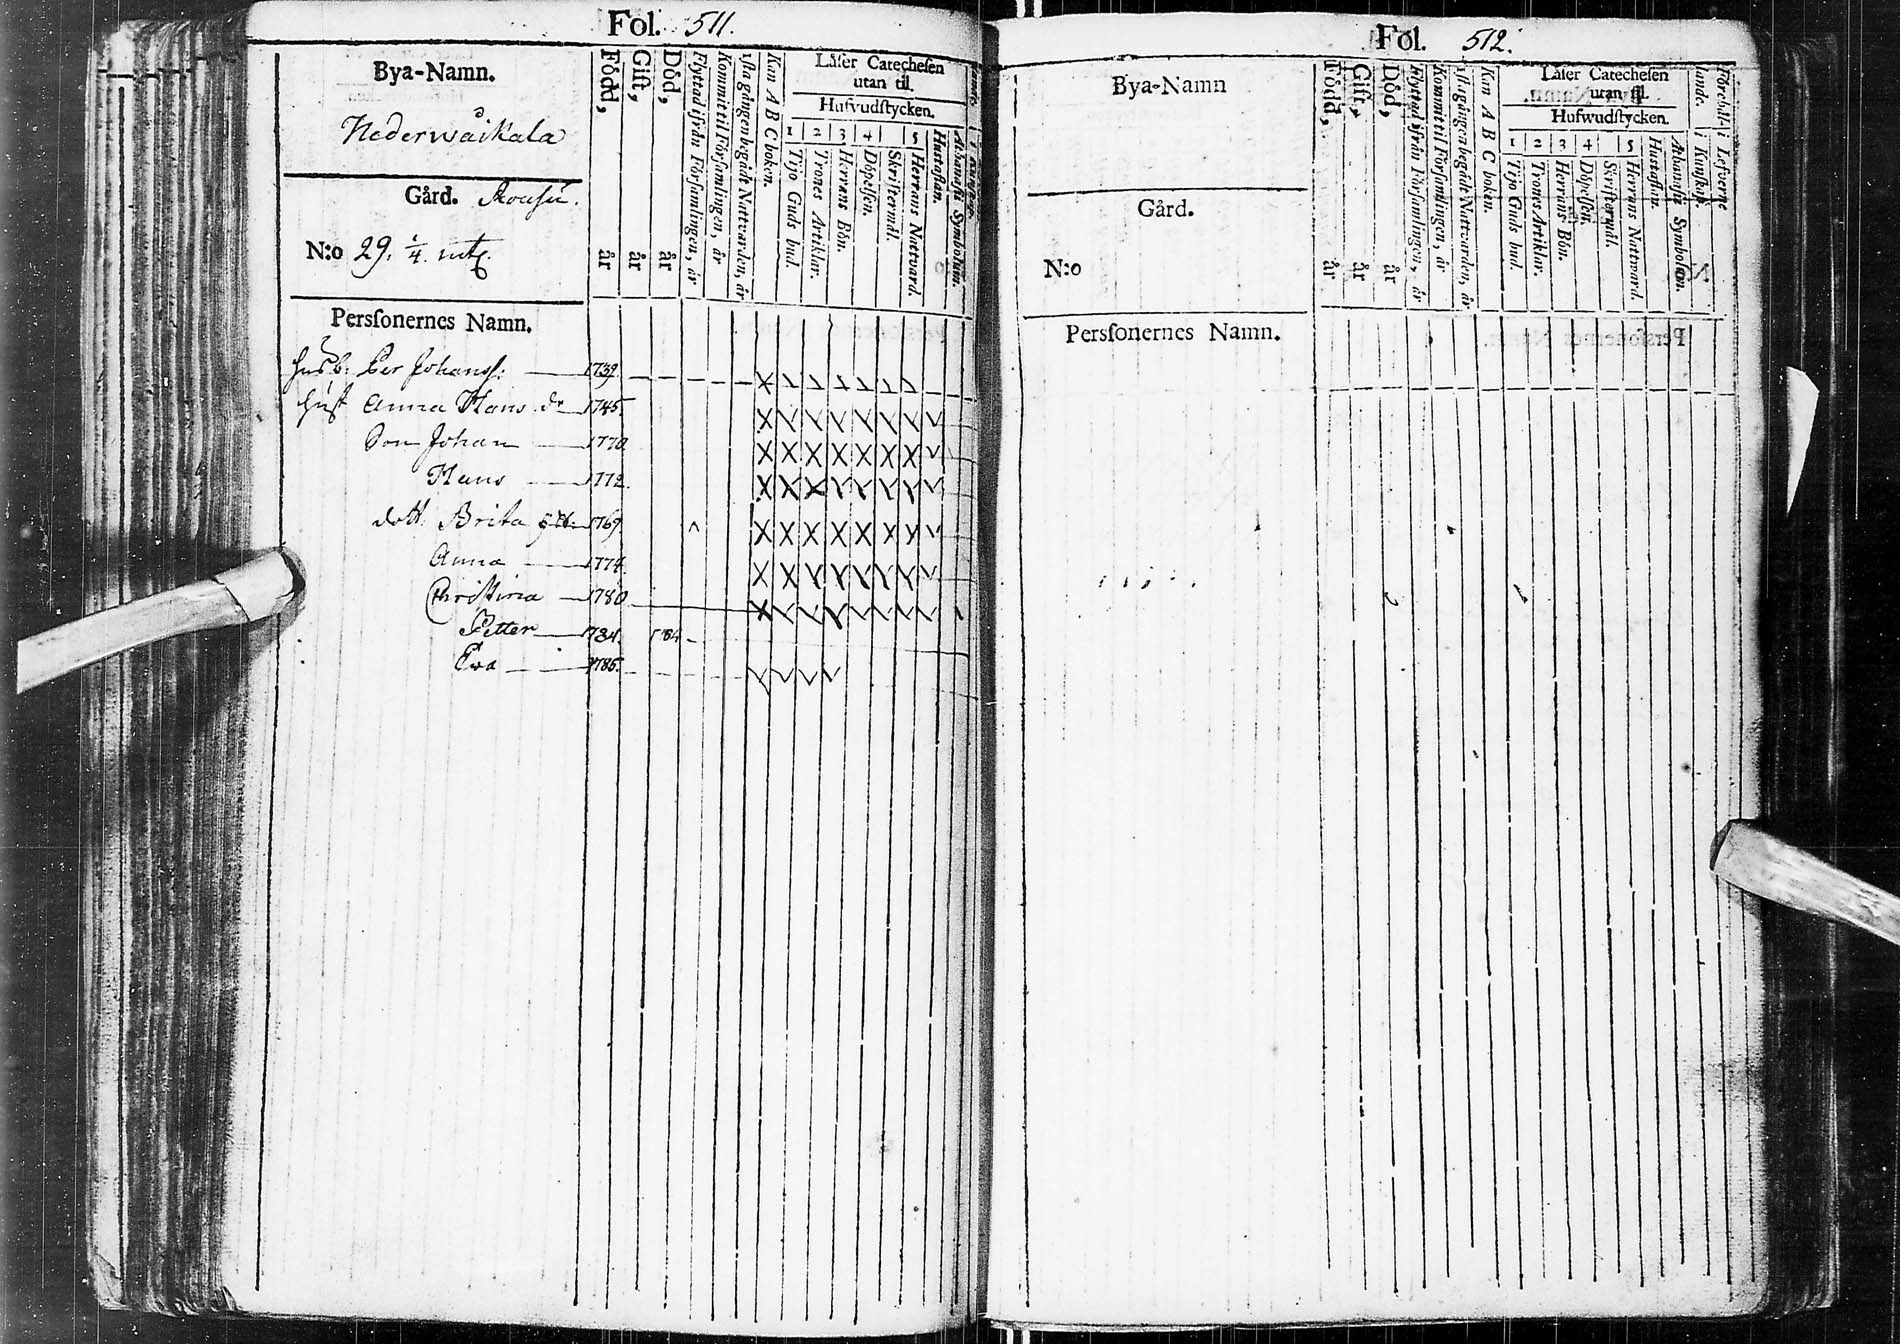 Fol. 511.
Bya-Namn.
Nederwåikala
Gård.
N:o 29. 1/4. mtl.
Persſonernes Namn.
Född, år
Gift, år
Död, år
Flyttad ifrån Förſamlingen, år
Kommit til Förſamlingen, år
1ſta gången begådt Nattvarden, år
Kan A B C boken.
Läſer Catecheſen
utan til.
Hufvudſtycken.
1 2 3 4 5
Tijo Guds bud.
Trones Artiklar.
Herrans Bön.
Döpelſen.
Skriftermål.
Herrans Natvard.
Huſtaflan.
Athanaſii Symbolum.
husb. Per Johansſ: 1739.
hust Anna Hans dr 1745.
Son Johan 1770
Hans 1772.
dott. Brita 1769.
Anna 1774.
Christina 1780
Petter 1784. 1784
Ewa 1785.
Fol. 512.
Bya-Namn
Gård.
N:o
Persſonernes Namn.
Född, år
Gift, år
Död, år
Flyttad ifrån Förſamlingen, år
Kommit til Förſamlingen, år
1ſta gången begådt Nattvarden, år
Kan A B C boken.
Läſer Catecheſen
utan til.
Hufwudſtycken.
1 2 3 4 5
Tijo Guds bud.
Trones Artiklar.
Herrans Bön.
Döpelſen.
Skriftermål.
Herrans Natward.
Huſtaflan.
Athanaſii Symbolum.
i Kunſkap.
i Lefverne